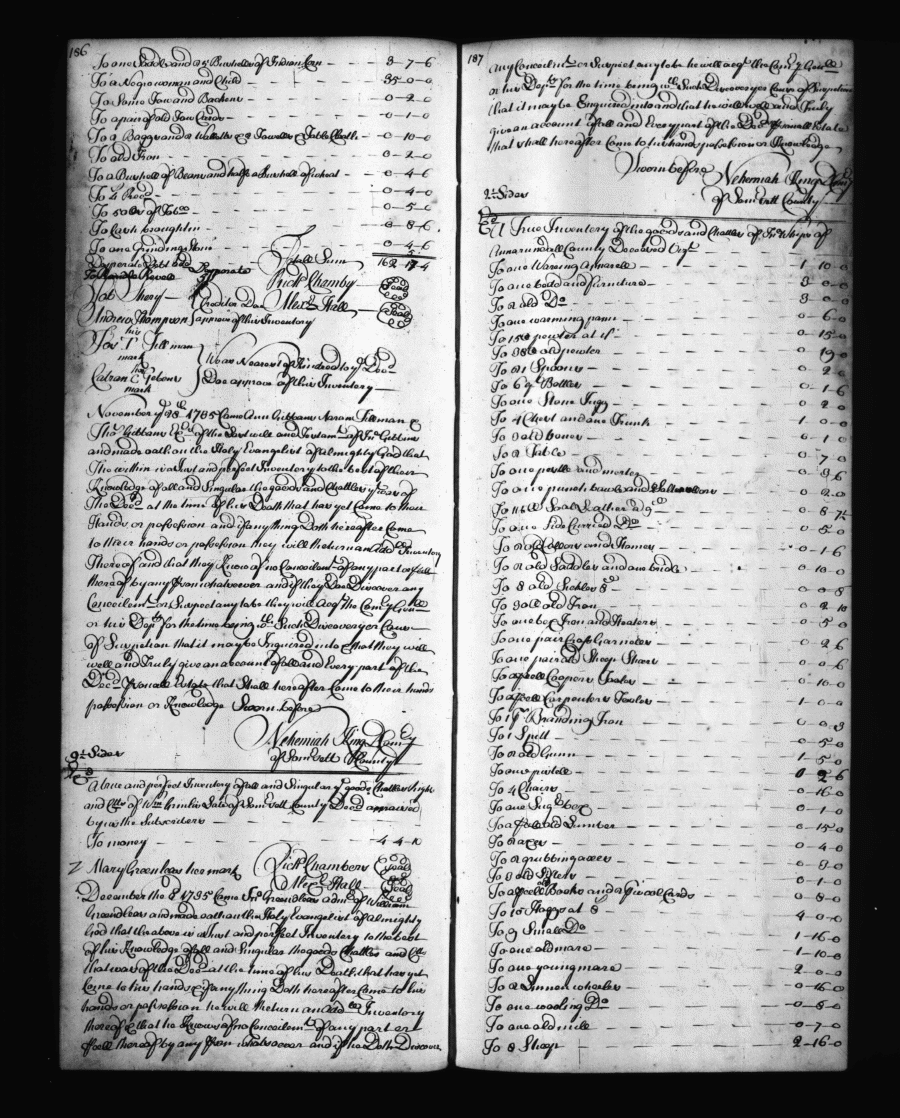 186
To one Saddle and 25 Bushells of Indian Corn - 3-7-6
To a Negro woman and Child 35-0-0
To Some Tow and - 0-2-0
To a pair of old Tow Cards - 0-1-0
To 2 Baggs and a Wallett & 2 Towells & Table Cloth - 0-10-0
To old Iron - 0-2-0
To a Bushell of Beans and halfe a Bushell of wheat - 0-4-6
To 4 - 0-4-0
To 50 lbs of Tobco - 0-5-0
To Cash brought in - 0-8-6
To one Grinding Stone - 0-4-6
Desperate Debt Totall Sum 162-17-4
Revell Desperate Richd Chambers Seal
Job Creditor Doe Alexr Hall Seal
Andrew Thompson approve of his Inventory
his
T Tillman
mark We as Nearest of Kindred to ye Decd
Catran C Gibens Doe approve of this Inventory
mark
November ye 28th 1735 Came Ann Gibbens Aaron Tillman &
Thos Gibbens Exrs of the Last will and Testamt of Jno Gibbens
and made oath on the Holy Evangelist of almighty God that
The within is a Just and perfect Inventory to the best of their
Knowledge of all and Singular the goods and Chattles yt was of
The Decd at the time of his Death that has yet Come to their
Hands or possession and if any thing Doth hereafter Come
to their hands or possession they will Return an Add Inventory
Thereof and that they Know of no Concealmt of any part or
thereof by any pson whatsoever and if they Doe Discover any
Concealemt or Suspect any to be they will Acqt the Comry Genll
or his Depty for the time being wth Such Discovery or Cause
of Suspition that it may be Inquired into & that they will
well and Truly give an account of all and Every part of the
Decd psonall Estate that Shall hereafter Come to their hands
possession or Knowledge Sworn before
Nehemiah King D Comry
of Somrsett County
A true and perfect Inventory of all and Singular ye goods Chattles Rights
and of Wm late of Somrsett County Decd appraised
by us the Subscribers
To money - 4-4-10
Mary Greenleas her mark Richd Chambers Seal
Alexr Hall Seal
December the 8 1735 Came Greenleas admr of William
Greenleas and made oath on the Holy Evangelist of almighty
God that the above is a Just and perfect Inventory to the best
of his Knowledge of all and Singular the goods Chattles and
that was of the Decd at the time of his Death that has yet
Come to his hands & if any thing Doth hereafter Come to his
hands or possession he will Return an Add Inventory
thereof & that he Knows of no Concealemt of any part or
pcell thereof by any pson whatsoever and if he Doth Discover
187
any Concealmt or Suspect any to be he will acqt the Comry Genll
or his Depty for the time being wth Such Discovery or Cause of Suspition
that it may be Enquired into and that he will well and Truly
give an account of all and Every part of the Decd psonall Estate
that shall hereafter Come to his hands possession or Knowledge
Sworn before Nehemiah King D Comry
of Somrsett County
A True Inventory of the goods and Chattles of of
Annarundell County Deceased
To one Waring Apparell 1 10-0
To one bedd and furniture - 3 0-0
To 2 old Do 3 0-0
To one warming pann - 0 6-0
To 15 lb pewter at 1s - 0 15-0
To 38 lb old pewter - 0 19-0
To 21 Spoons - 0 2-0
To 6 qt Bottles - 0-1-6
To one Stone Jugg - 0 2-0
To 4 Chest and one Trunk - 1 0-0
To 3 old boxes - 0 1-0
To a Table - 0-7-0
To one pestle and morter - 0 3-6
To one punch bowl and - 0 2-0
To 11 1/2 lb Leather a 9d - 0 8-7½
To one Side Curried Do - 0 5-0
To and Hamer - 0-1-6
To 2 old Saddles and one bridle - 0 10-0
To 8 old 0 0 8
To old Iron 0 2 10
To one box Iron and Heaters - 0 5-0
To one pair Garnets - 0 2-6
To one pair old Sheep Shears 0-0-6
To a pcell Coopers Tooles - 0 10-0
To a pcell Carpenters Tooles - 1-0-0
To 1 Branding Iron - 0-0-3
To 1 Spitt - 0 5-0
To 2 old Gunns 1-5-0
To one pistoll - 0 2-6
To 4 Chairs - 0-16-0
To one Sugr box - 0-1-0
To a pcell old Lumber - 0-15-0
To 2 axes - 0-4-0
To 2 grubbing axes - 0-3-0
To 8 old - 0-1-0
To a pcell old Books and 2 pr wooll Cards - 0-8-0
To 10 Hoggs at 8 - 4-0-0
To 9 Small Do - 1-16-0
To one old mare - 1-10-0
To one young mare - 2-0-0
To 2 Linnen wheeles - 0-16-0
To one wooling Do - 0-8-0
To one old mill - 0-7-0
To 8 Sheep - 2-16-0